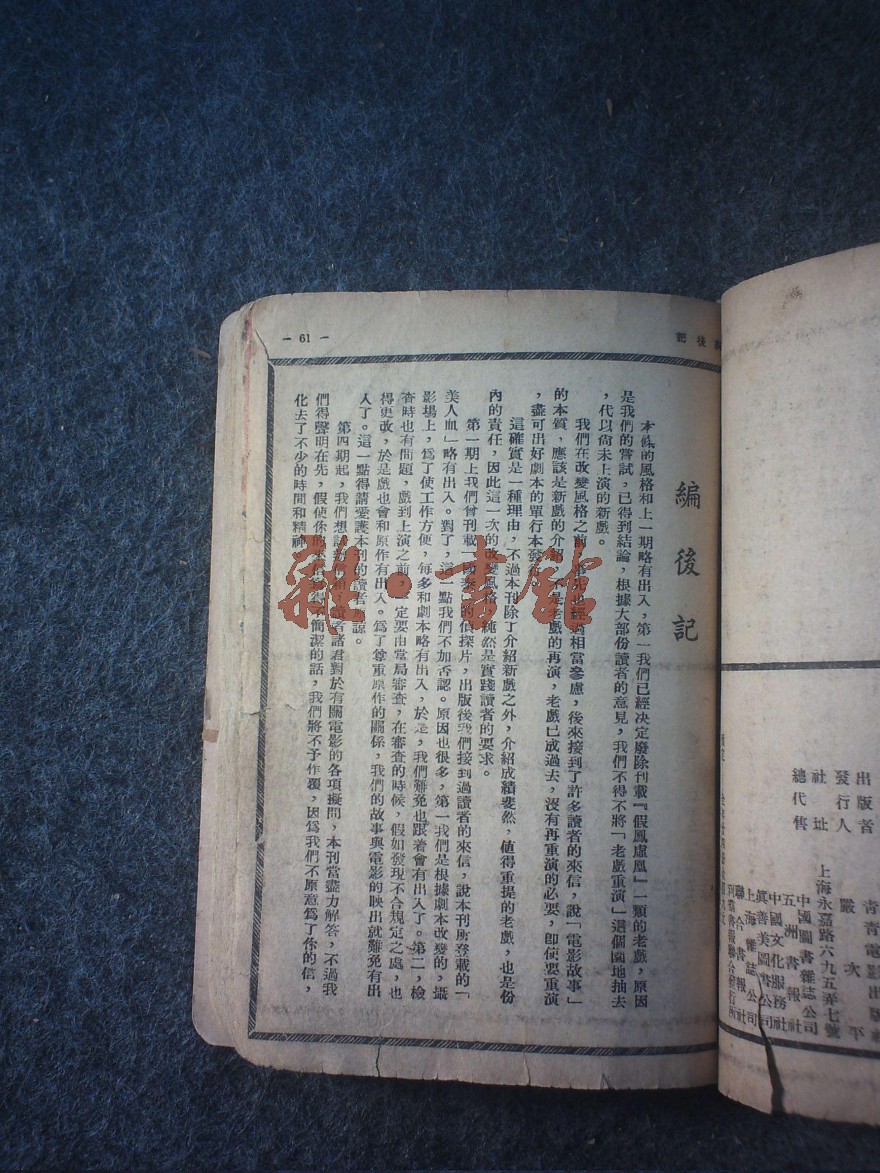 出版者
發行人
社址
總代售
青青電影出版社
嚴次平
上海永嘉路六九五弄七號
中國圖書雜誌公司
五洲書報社
中國文化服務社
眞善美圖書公司
上海雜誌公司
聯合書報社
後記
編後記
本條的風格和上一期略有出入,第一我們已經决定廢除刊載『假鳳虛凰』一類的老戲,原因
是我們的嘗試,已得到結論,根據大部份讀者的意見,我們不得不將「老戲重演」這個園地抽去
,代以尙未上演的新戲。
我們在改變風格之前,事先也經過相當參慮,後來接到了許多讀者的來信,說「電影故事」
的本質,應該是新戲的介紹,不是老戲的再演,老戲已成過去,沒有再重演的必要,卽使要重演
,盡可出好劇本的單行本發行。
這確實是一種理由,不過本刊除了介紹新戲之外,介紹成績斐然,値得重提的老戲,也是份
內的責任,因此這一次的改變風格,純然是實踐讀者的要求。
第一期上我們曾刊載「國泰」的偵探片,出版後我們接到過讀者的來信,說本刊所登載的「
美人血」略有出入。對了,這一點我們不加否認。原因也很多,第一我們是根據劇本改變的,攝
影場上,爲了使工作方便,每多和劇本略有出入,於是,我們難免也跟着會有出入了。第二,檢
查時也有問題,戲到上演之前,一定要由當局審查,在審查的時候,假如發現不合規定之處,也
得更改,於是戲也會和原作有出入。爲了尊重原作的關係,我們的故事與電影的映出就難免有出
入了。這一點得請愛護本刊的讀者原諒。
第四期起,我們想談談 讀者諸君對於有關電影的各項擬問,本刊當盡力解答,不過我
們得聲明在先,假使你的來信 得不簡潔的話,我們將不予作覆,因爲我們不願意爲了你的信,
化去了不少的時間和精神。
— 61 —
雜·書館